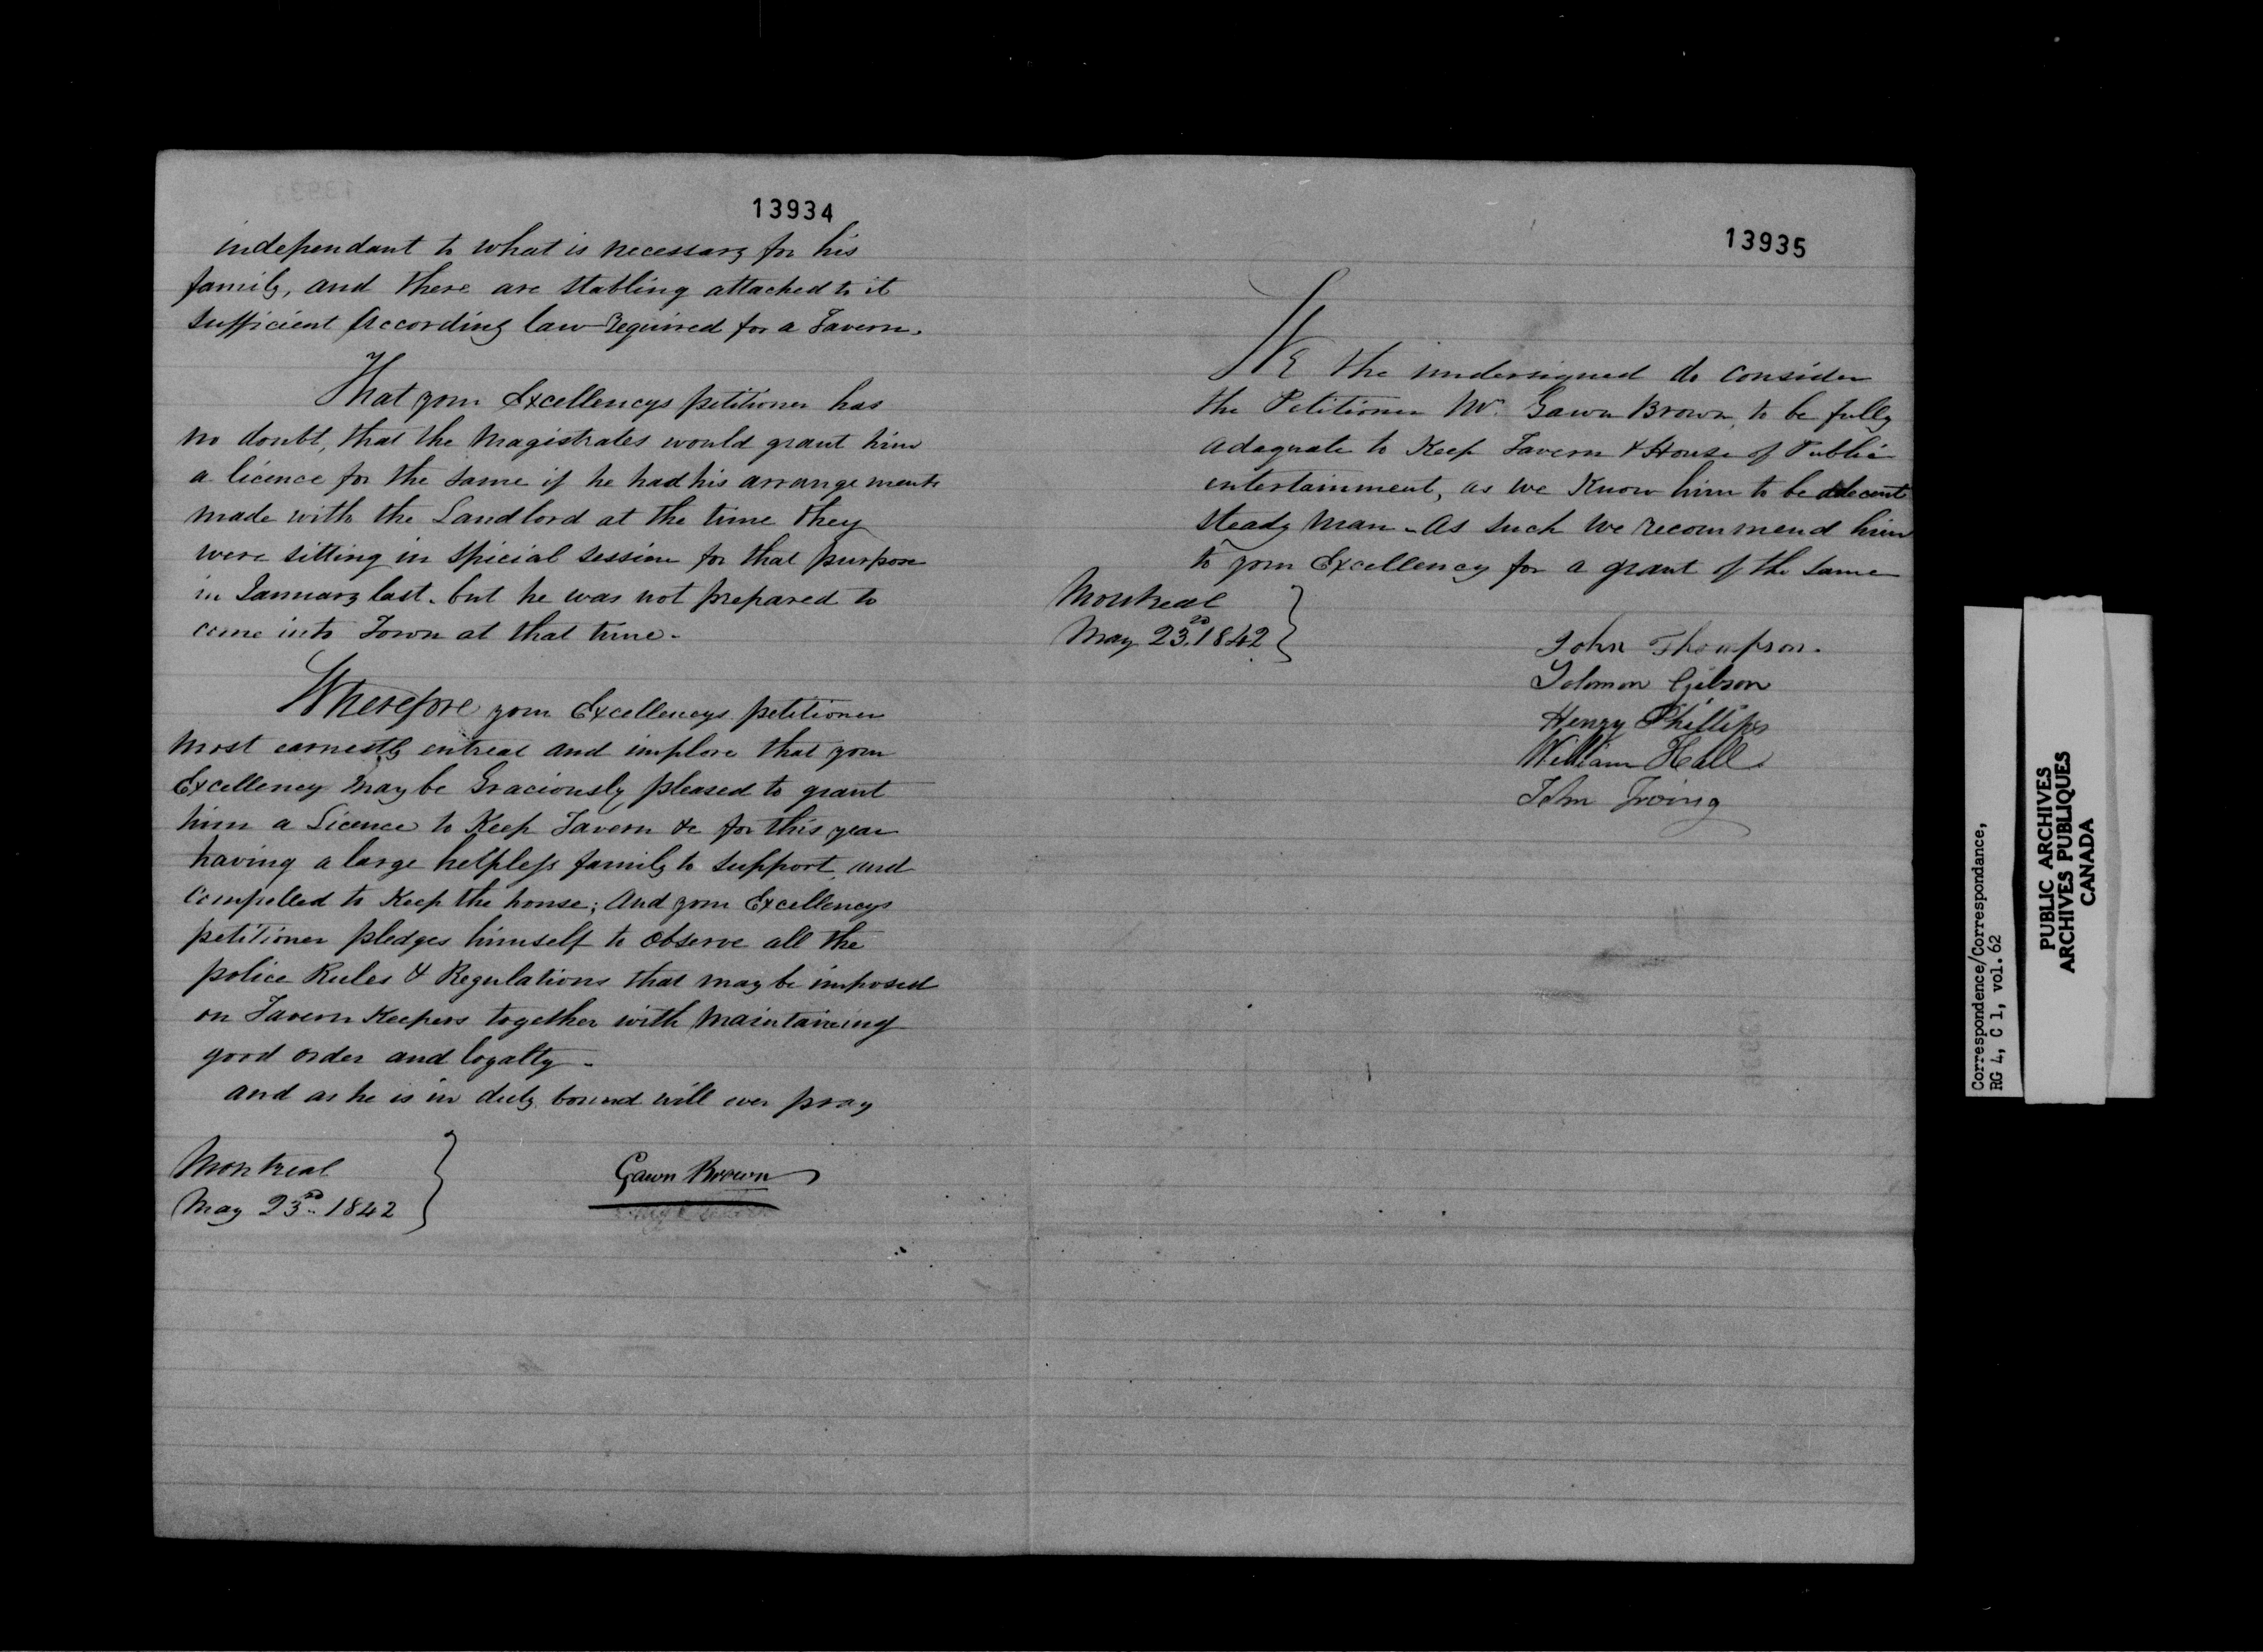 13934
independant to what is necessary for his
family, and there are stabling attached to it
sufficient According law required for a Tavern.
That your Excellencys petitioner has
no doubt, that the Magistrates would grant him
a licence for the same if he had his arrangements
made with the Landlord at the time they
were sitting in spicial session for that purpose
in January last. but he was not prepared to
come into Town at that time.
Wherefore your Excellencys petitioner
most earnestly entreat and implore that your
Excellency may be Graciously pleased to grant
him a Licence to Keep Tavern &c for this year
having a large helpless family to support, and
compelled to Keep the house; And your Excellencys
petitioner pledges himself to observe all the
police Rules & Regulations that may be imposed
on Tavern Keepers together with Maintaining
good order and loyalty -
and as he is in duty bound will ever pray
Montreal
May 23rd 1842
Gawn Brown
13935
We the undersigned do consider
the Petitioner Mr. Gawn Brown, to be fully
adaquate to Keep Tavern & House of Public
entertainment, as we Know him to be a decent
steady man - As such we recommend him
to your Excellency for a grant of the same
Montreal
May 23rd 1842
John Thompson.
Solomon Gibson
Henry Phillips
William Hall
John Irving
Correspondence/Correspondance,
RG 4, C 1, vol. 62
PUBLIC ARCHIVES
ARCHIVES PUBLIQUES
CANADA